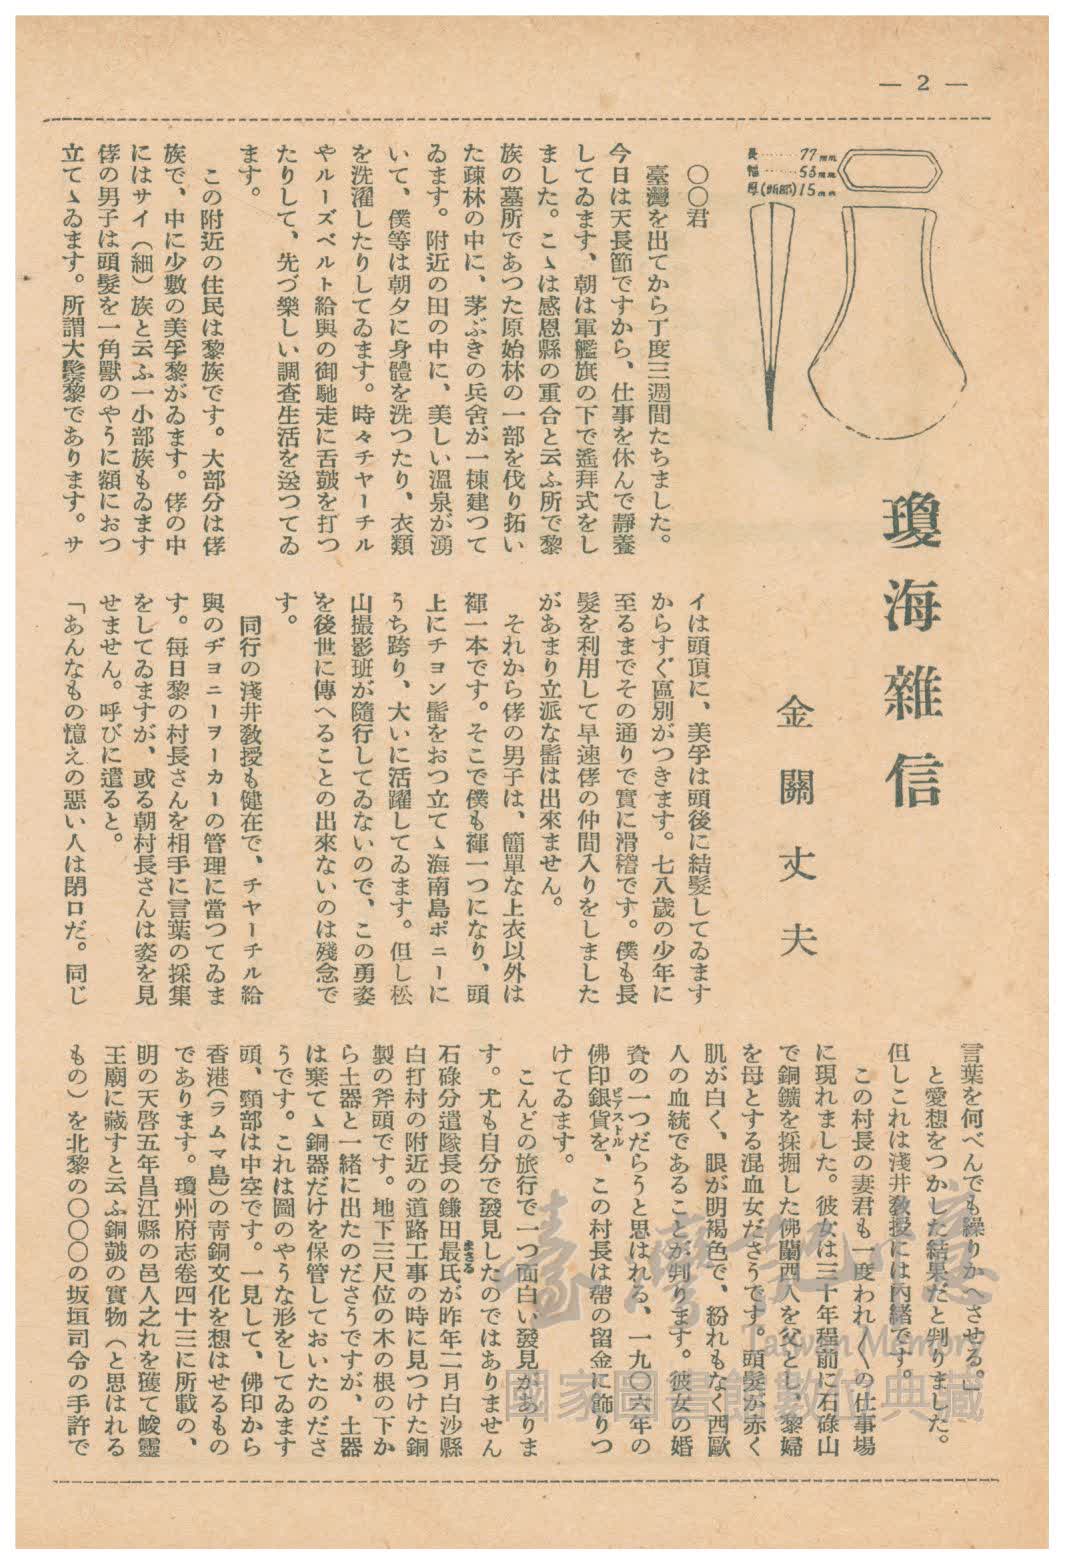 — 2 —
長……77mm
幅……53mm
厚(斷部)15mm
瓊海雜信
金關丈夫
〇〇君
臺灣を出てから丁度三週間たちました。
今日は天長節ですから、仕事を休んで靜養
してゐます、朝は軍艦旗の下で遙拜式をし
ました。こゝは感恩縣の重合と云ふ所で黎
族の墓所であつた原始林の一部を伐り拓い
た疎林の中に、茅ぶきの兵舍が一棟建つて
ゐます。附近の田の中に、美しい溫泉が湧
いて、僕等は朝夕に身體を洗つたり、衣類
を洗濯したりしてゐます。時々チヤーチル
やルーズベルト給與の御馳走に舌皷を打つ
たりして、先づ樂しい調査生活を送つてゐ
ます。
この附近の住民は黎族です。大部分は侾
族で、中に少數の美孚黎がゐます。侾の中
にはサイ（細）族と云ふ一小部族もゐます
侾の男子は頭髮を一角獸のやうに額におつ
立てゝゐます。所謂大鬃黎であります。サ
イは頭頂に、美孚は頭後に結髮してゐます
からすぐ區別がつきます。七八歲の少年に
至るまでその通りで實に滑稽です。僕も長
髮を利用して早速侾の仲間入りをしました
があまり立派な髷は出來ません。
それから侾の男子は、簡單な上衣以外は
褌一本です。そこで僕も褌一つになり、頭
上にチヨン髷をおつ立てゝ海南島ポニーに
うち跨り、大いに活躍してゐます。但し松
山撮影班が隨行してゐないので、この勇姿
を後世に傳へることの出來ないのは殘念で
す。
同行の淺井敎授も健在で、チヤーチル給
與のヂヨニーヲーカーの管理に當つてゐま
す。每日黎の村長さんを相手に言葉の採集
をしてゐますが、或る朝村長さんは姿を見
せません。呼びに遣ると。
「あんなもの憶えの惡い人は閉口だ。同じ
言葉を何べんでも繰りかへさせる。」
と愛想をつかした結果だと判りました。
但しこれは淺井敎授には內緖です。
この村長の妻君も一度われ〳〵の仕事場
に現れました。彼女は三十年程前に石碌山
で銅鑛を採掘した佛蘭西人を父とし、黎婦
を母とする混血女ださうです。頭髮が赤く
肌が白く、眼が明褐色で、紛れもなく西歐
人の血統であることが判ります。彼女の婚
資の一つだらうと思はれる、一九〇六年の
佛印銀貨ピアストルを、この村長は帶の留金に飾りつ
けてゐます。
こんどの旅行で一つ面白い發見がありま
す。尤も自分で發見したのではありません
石碌分遣隊長の鎌田最まさる氏が昨年二月白沙縣
白打村の附近の道路工事の時に見つけた銅
製の斧頭です。地下三尺位の木の根の下か
ら土器と一緖に出たのださうですが、土器
は棄てゝ銅器だけを保管しておいたのださ
うです。これは圖のやうな形をしてゐます
頭、頸部は中空です。一見して、佛印から
香港(ラムマ島)の靑銅文化を想はせるもの
であります。瓊州府志卷四十三に所載の、
明の天啓五年昌江縣の邑人之れを獲て峻靈
王廟に藏すと云ふ銅皷の實物（と思はれる
もの）を北黎の〇〇〇〇の坂垣司令の手許で
臺灣記憶
Taiwan Memory
國家圖書館數位典藏